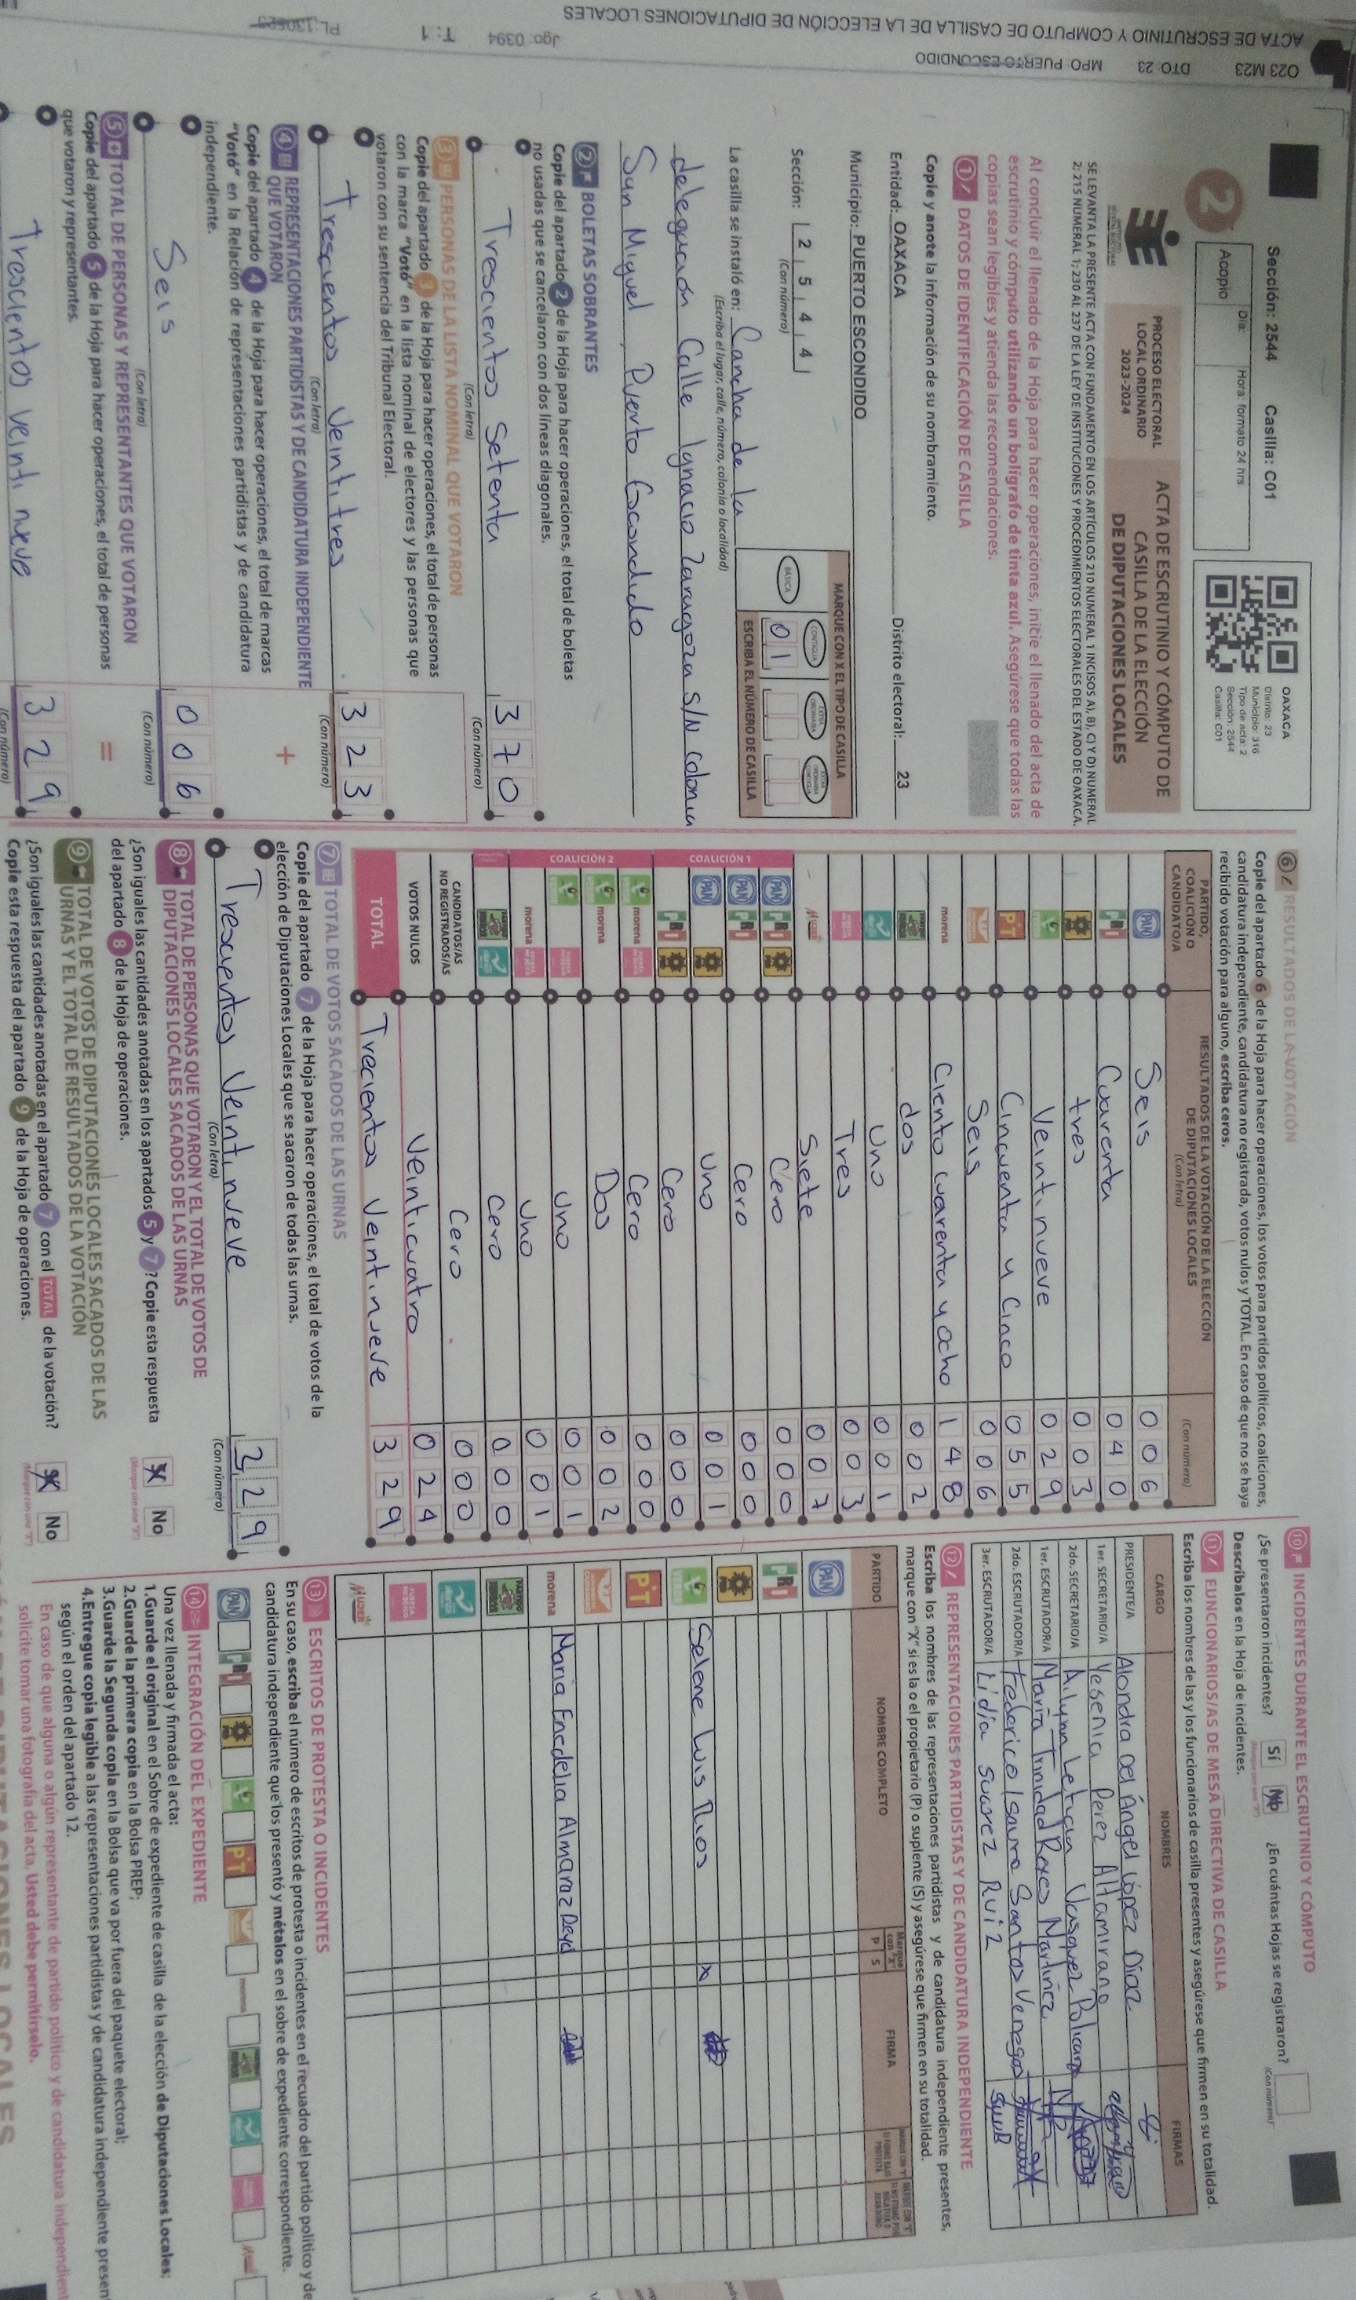 O23 M23 DTO: 23 MPO: PUERTO ESCONDIDO
ACTA DE ESCRUTINIO Y COMPUTO DE CASILLA DE LA ELECCIÓN DE DIPUTACIONES LOCALES
Jgo: 0394 T: 1
Sección: 2544 Casilla: C01
2
Acopio
Día:
Hora: formato 24 hrs
OAXACA
Distrito: 23
Municipio: 316
Tipo de acta: 2
Sección: 2544
Casilla: C01
PROCESO ELECTORAL
LOCAL ORDINARIO
2023-2024
ACTA DE ESCRUTINIO Y CÓMPUTO DE
CASILLA DE LA ELECCIÓN
DE DIPUTACIONES LOCALES
SE LEVANTA LA PRESENTE ACTA CON FUNDAMENTO EN LOS ARTÍCULOS 210 NUMERAL 1 INCISOS A), B), C) Y D) NUMERAL
2; 215 NUMERAL 1; 230 AL 237 DE LA LEY DE INSTITUCIONES Y PROCEDIMIENTOS ELECTORALES DEL ESTADO DE OAXACA.
Al concluir el llenado de la Hoja para hacer operaciones, inicie el llenado del acta de
escrutinio y cómputo utilizando un bolígrafo de tinta azul. Asegúrese que todas las
copias sean legibles y atienda las recomendaciones.
1 DATOS DE IDENTIFICACIÓN DE CASILLA
Copie y anote la información de su nombramiento.
Entidad: OAXACA Distrito electoral: 23
Municipio: PUERTO ESCONDIDO
Sección: 2 5 4 4
(Con número)
MARQUE CON X EL TIPO DE CASILLA
BÁSICA
CONTIGUA
ESCRIBA EL NÚMERO DE CASILLA
0 1
La casilla se instaló en: Cancha de la
(Escriba el lugar, calle, número, colonia o localidad)
delegación Calle Ignacio Zaragoza S/N Colonia
San Miguel, Puerto Escondido
2 BOLETAS SOBRANTES
Copie del apartado 2 de la Hoja para hacer operaciones, el total de boletas
no usadas que se cancelaron con dos líneas diagonales.
Trescientos Setenta 370
(Con letra) (Con número)
3 PERSONAS DE LA LISTA NOMINAL QUE VOTARON
Copie del apartado 3 de la Hoja para hacer operaciones, el total de personas
con la marca "Votó" en la lista nominal de electores y las personas que
votaron con su sentencia del Tribunal Electoral.
Trescientos Veintitres 323
(Con letra) (Con número)
4 REPRESENTACIONES PARTIDISTAS Y DE CANDIDATURA INDEPENDIENTE
QUE VOTARON
+
Copie del apartado 4 de la Hoja para hacer operaciones, el total de marcas
"Votó" en la Relación de representaciones partidistas y de candidatura
independiente.
Seis 006
(Con letra) (Con número)
5 TOTAL DE PERSONAS Y REPRESENTANTES QUE VOTARON
=
Copie del apartado 5 de la Hoja para hacer operaciones, el total de personas
que votaron y representantes.
Trescientos Veinti nueve 329
(Con número)
6 RESULTADOS DE LA VOTACIÓN
Copie del apartado 6 de la Hoja para hacer operaciones, los votos para partidos políticos, coaliciones,
candidatura independiente, candidatura no registrada, votos nulos y TOTAL. En caso de que no se haya
recibido votación para alguno, escriba ceros.
PARTIDO,
COALICIÓN O
CANDIDATO/A
RESULTADOS DE LA VOTACIÓN DE LA ELECCIÓN
DE DIPUTACIONES LOCALES
(Con letra)
(Con número)
PAN Seis 006
PRI Cuarenta 040
tres 003
VERDE Veinti nueve 029
PT Cincuenta y Cinco 055
Seis 006
morena Ciento Cuarenta y ocho 148
dos 002
Uno 001
Tres 003
MUJER Siete 007
COALICIÓN 1
PAN PRI Cero 000
PAN PRI Cero 000
PAN Uno 001
PRI Cero 000
COALICIÓN 2
VERDE morena Cero 000
VERDE morena Dos 002
VERDE Uno 001
morena Uno 001
Cero 000
CANDIDATOS/AS
NO REGISTRADOS/AS Cero 000
VOTOS NULOS Veinticuatro 024
TOTAL Trecientos Veinti nueve 329
7 TOTAL DE VOTOS SACADOS DE LAS URNAS
Copie del apartado 7 de la Hoja para hacer operaciones, el total de votos de la
elección de Diputaciones Locales que se sacaron de todas las urnas.
Trescientos Veinti nueve 329
(Con letra) (Con número)
8 TOTAL DE PERSONAS QUE VOTARON Y EL TOTAL DE VOTOS DE
DIPUTACIONES LOCALES SACADOS DE LAS URNAS
¿Son iguales las cantidades anotadas en los apartados 5 y 7? Copie esta respuesta
del apartado 8 de la Hoja de operaciones.
No
9 TOTAL DE VOTOS DE DIPUTACIONES LOCALES SACADOS DE LAS
URNAS Y EL TOTAL DE RESULTADOS DE LA VOTACIÓN
¿Son iguales las cantidades anotadas en el apartado 7 con el TOTAL de la votación?
Copie esta respuesta del apartado 9 de la Hoja de operaciones.
No
10 INCIDENTES DURANTE EL ESCRUTINIO Y CÓMPUTO
¿Se presentaron incidentes? Sí No ¿En cuántas Hojas se registraron?
(Con número)
Descríbalos en la Hoja de incidentes.
11 FUNCIONARIOS/AS DE MESA DIRECTIVA DE CASILLA
Escriba los nombres de las y los funcionarios de casilla presentes y asegúrese que firmen en su totalidad.
CARGO NOMBRES FIRMAS
PRESIDENTE/A Alondra Del Ángel López Díaz
1er. SECRETARIO/A Yesenia Perez Altamirano
2do. SECRETARIO/A Ailynn Leticia Vasquez Policarpo
1er. ESCRUTADOR/A María Trinidad Reyes Martinez
2do. ESCRUTADOR/A Federico Isauro Santos Venegas
3er. ESCRUTADOR/A Lidia Suarez Ruiz
12 REPRESENTACIONES PARTIDISTAS Y DE CANDIDATURA INDEPENDIENTE
Escriba los nombres de las representaciones partidistas y de candidatura independiente presentes,
marque con "X" si es la o el propietario (P) o suplente (S) y asegúrese que firmen en su totalidad.
PARTIDO NOMBRE COMPLETO Marque con "X" P S FIRMA
PAN
PRI
VERDE Selene Luis Rios X
PT
morena Maria Enedelia Almaraz
MUJER
13 ESCRITOS DE PROTESTA O INCIDENTES
En su caso, escriba el número de escritos de protesta o incidentes en el recuadro del partido político y de
candidatura independiente que los presentó y métalos en el sobre de expediente correspondiente.
PAN PRI PT
14 INTEGRACIÓN DEL EXPEDIENTE
Una vez llenada y firmada el acta:
1.Guarde el original en el Sobre de expediente de casilla de la elección de Diputaciones Locales;
2.Guarde la primera copia en la Bolsa PREP;
3.Guarde la Segunda copia en la Bolsa que va por fuera del paquete electoral;
4.Entregue copia legible a las representaciones partidistas y de candidatura independiente presen
según el orden del apartado 12.
En caso de que alguna o algún representante de partido político y de candidatura independient
solicite tomar una fotografía del acta, Usted debe permitírselo.